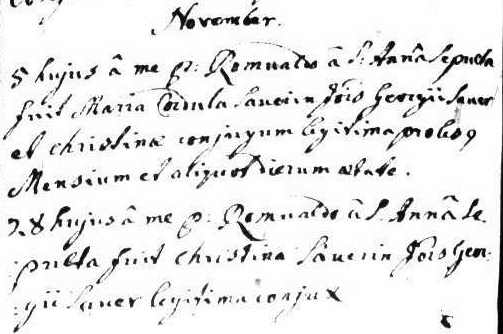 November.
5 hujus â me P: Romualdo â S: Annâ sepulta
fuit Maria Cordula Sauerin Jois Georgii Sauer
et Christinæ conjugum legitima proles 9
Mensium et aliquot dierum ætate.
28 hujus â me P: Romualdo â S: Annâ se
pulta fuit Christina Sauerin Jois Geor:
gii Sauer legitima conjux